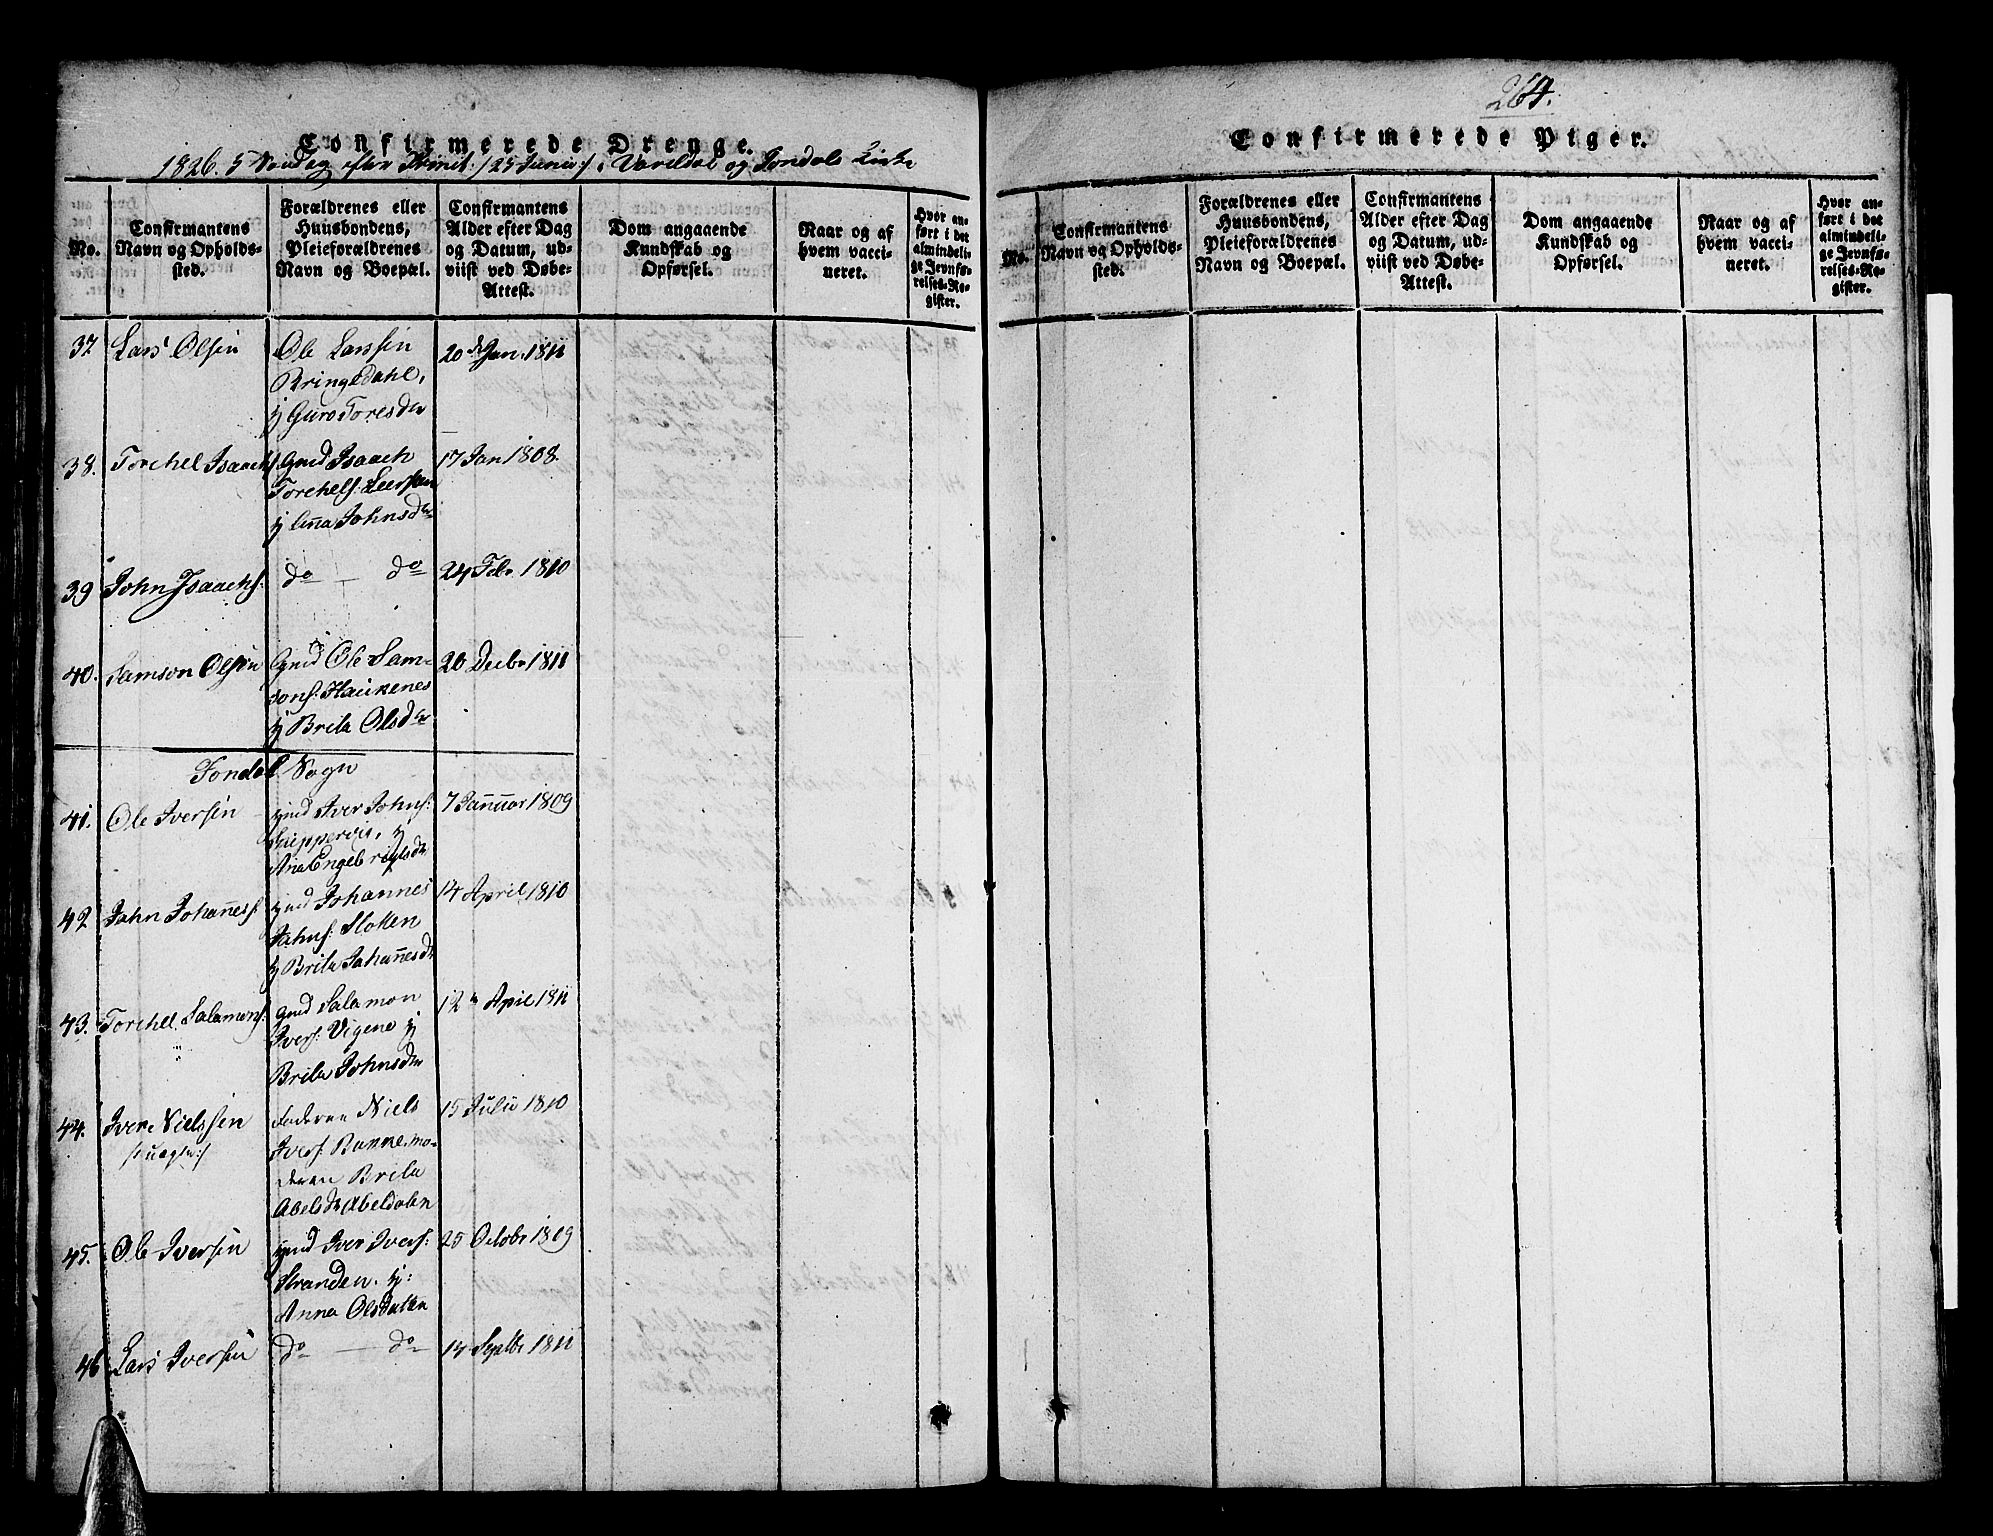 264.
Confirmerede Drenge.
1826. 5 Søndag efter Trinit: /25 Junii/ i Vareldsø og Jondals Kirke
No.
Confirmantens
Navn og Opholds-
sted.
Forældrenes eller
Huusbondens,
Pleieforældrenes
Navn og Boepæl.
Confirmantens
Alder efter Dag
og Datum, ud-
viist ved Døbe-
Attest.
Dom angaaende
Kundskab og
Opførsel.
Naar og af
hvem vacci-
neret.
Hvor an-
ført i det
almindeli-
ge Jevnfø-
relses-Re-
gister.
37 Lars Olsen
Ole Larssen
Bringedahl,
Guro Toresdr
20 Jan. 1811
38. Torchel Isaachs
Gmd Isaach
Torchels.
Johnsdr
17 Jan 1808.
39 John Isaachs:
do — do
24 Febr 1810
40. Samson Olsen
Gmd Ole Sam-
sons: Haukenes
Brita Olsdr
20 Decbr 1811
Jondal Sogn
41. Ole Iversen
gmd Iver Johns:
Ana Engelbrigtsdr
7 Januar 1809
42 John Johanness
gmd Johannes
Johns:
Brita Johannesdr
14 April 1810
43. Torchel Salamons:
gmd Salamon
Ivers: Vigene
Brita Johnsdr
12 April 1811
44. Iver Nielssen
Faderen Niels
Ivers: mo-
deren Brita
Abelsdr Abeldalen
15 Julii 1810
45. Ole Iversen
gmd Iver Ivers:
Stranden.
Anna Olsdatter
25 Octobr 1809
46 Lars Iversen
do — do
14 Septbr 1811
Confirmerede Piger.
No.
Confirmantens
Navn og Opholds-
sted.
Forældrenes eller
Huusbondens,
Pleieforældrenes
Navn og Boepæl.
Confirmantens
Alder efter Dag
og Datum, ud-
viist ved Døbe-
Attest.
Dom angaaende
Kundskab og
Opførsel.
Naar og af
hvem vacci-
neret.
Hvor an-
ført i det
almindeli-
ge Jevnfø-
relses-Re-
gister.